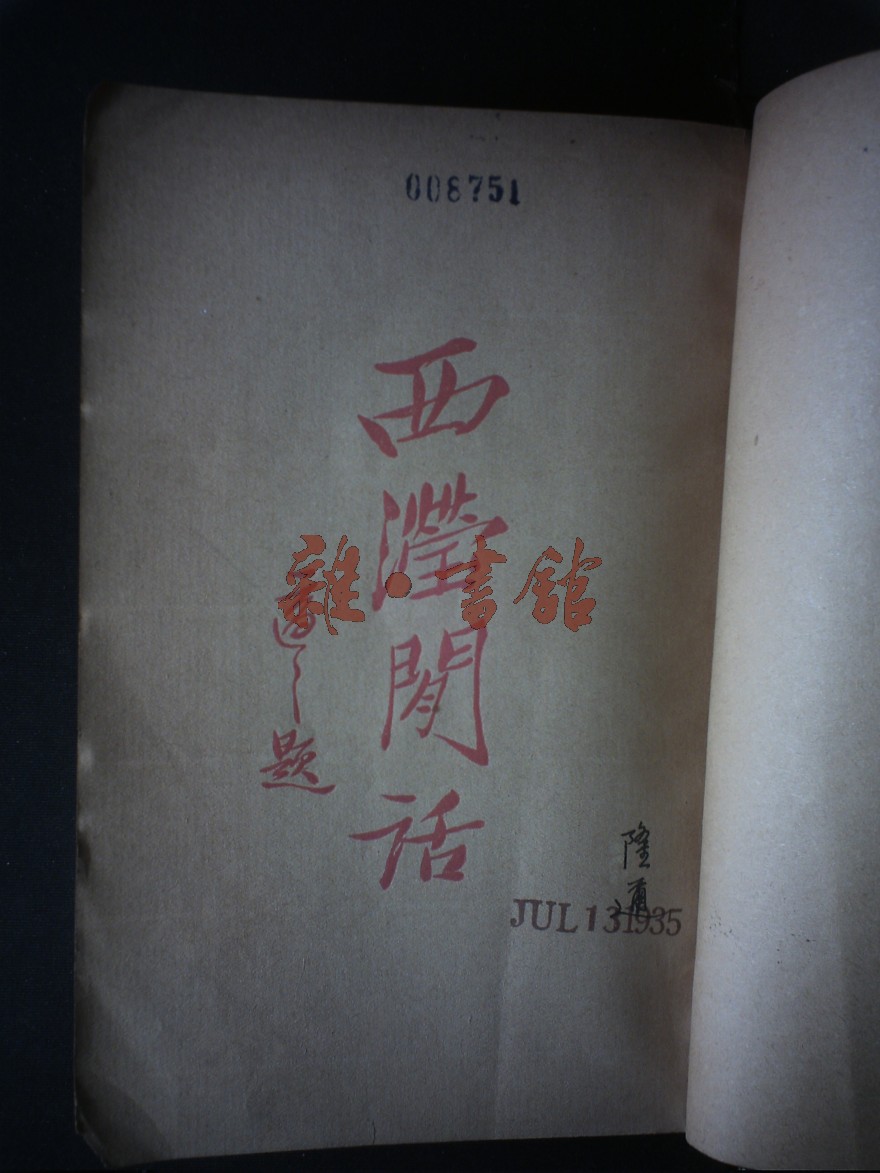 008751
西瀅閒話
題
雜·書館
隆
JUL 13 1935